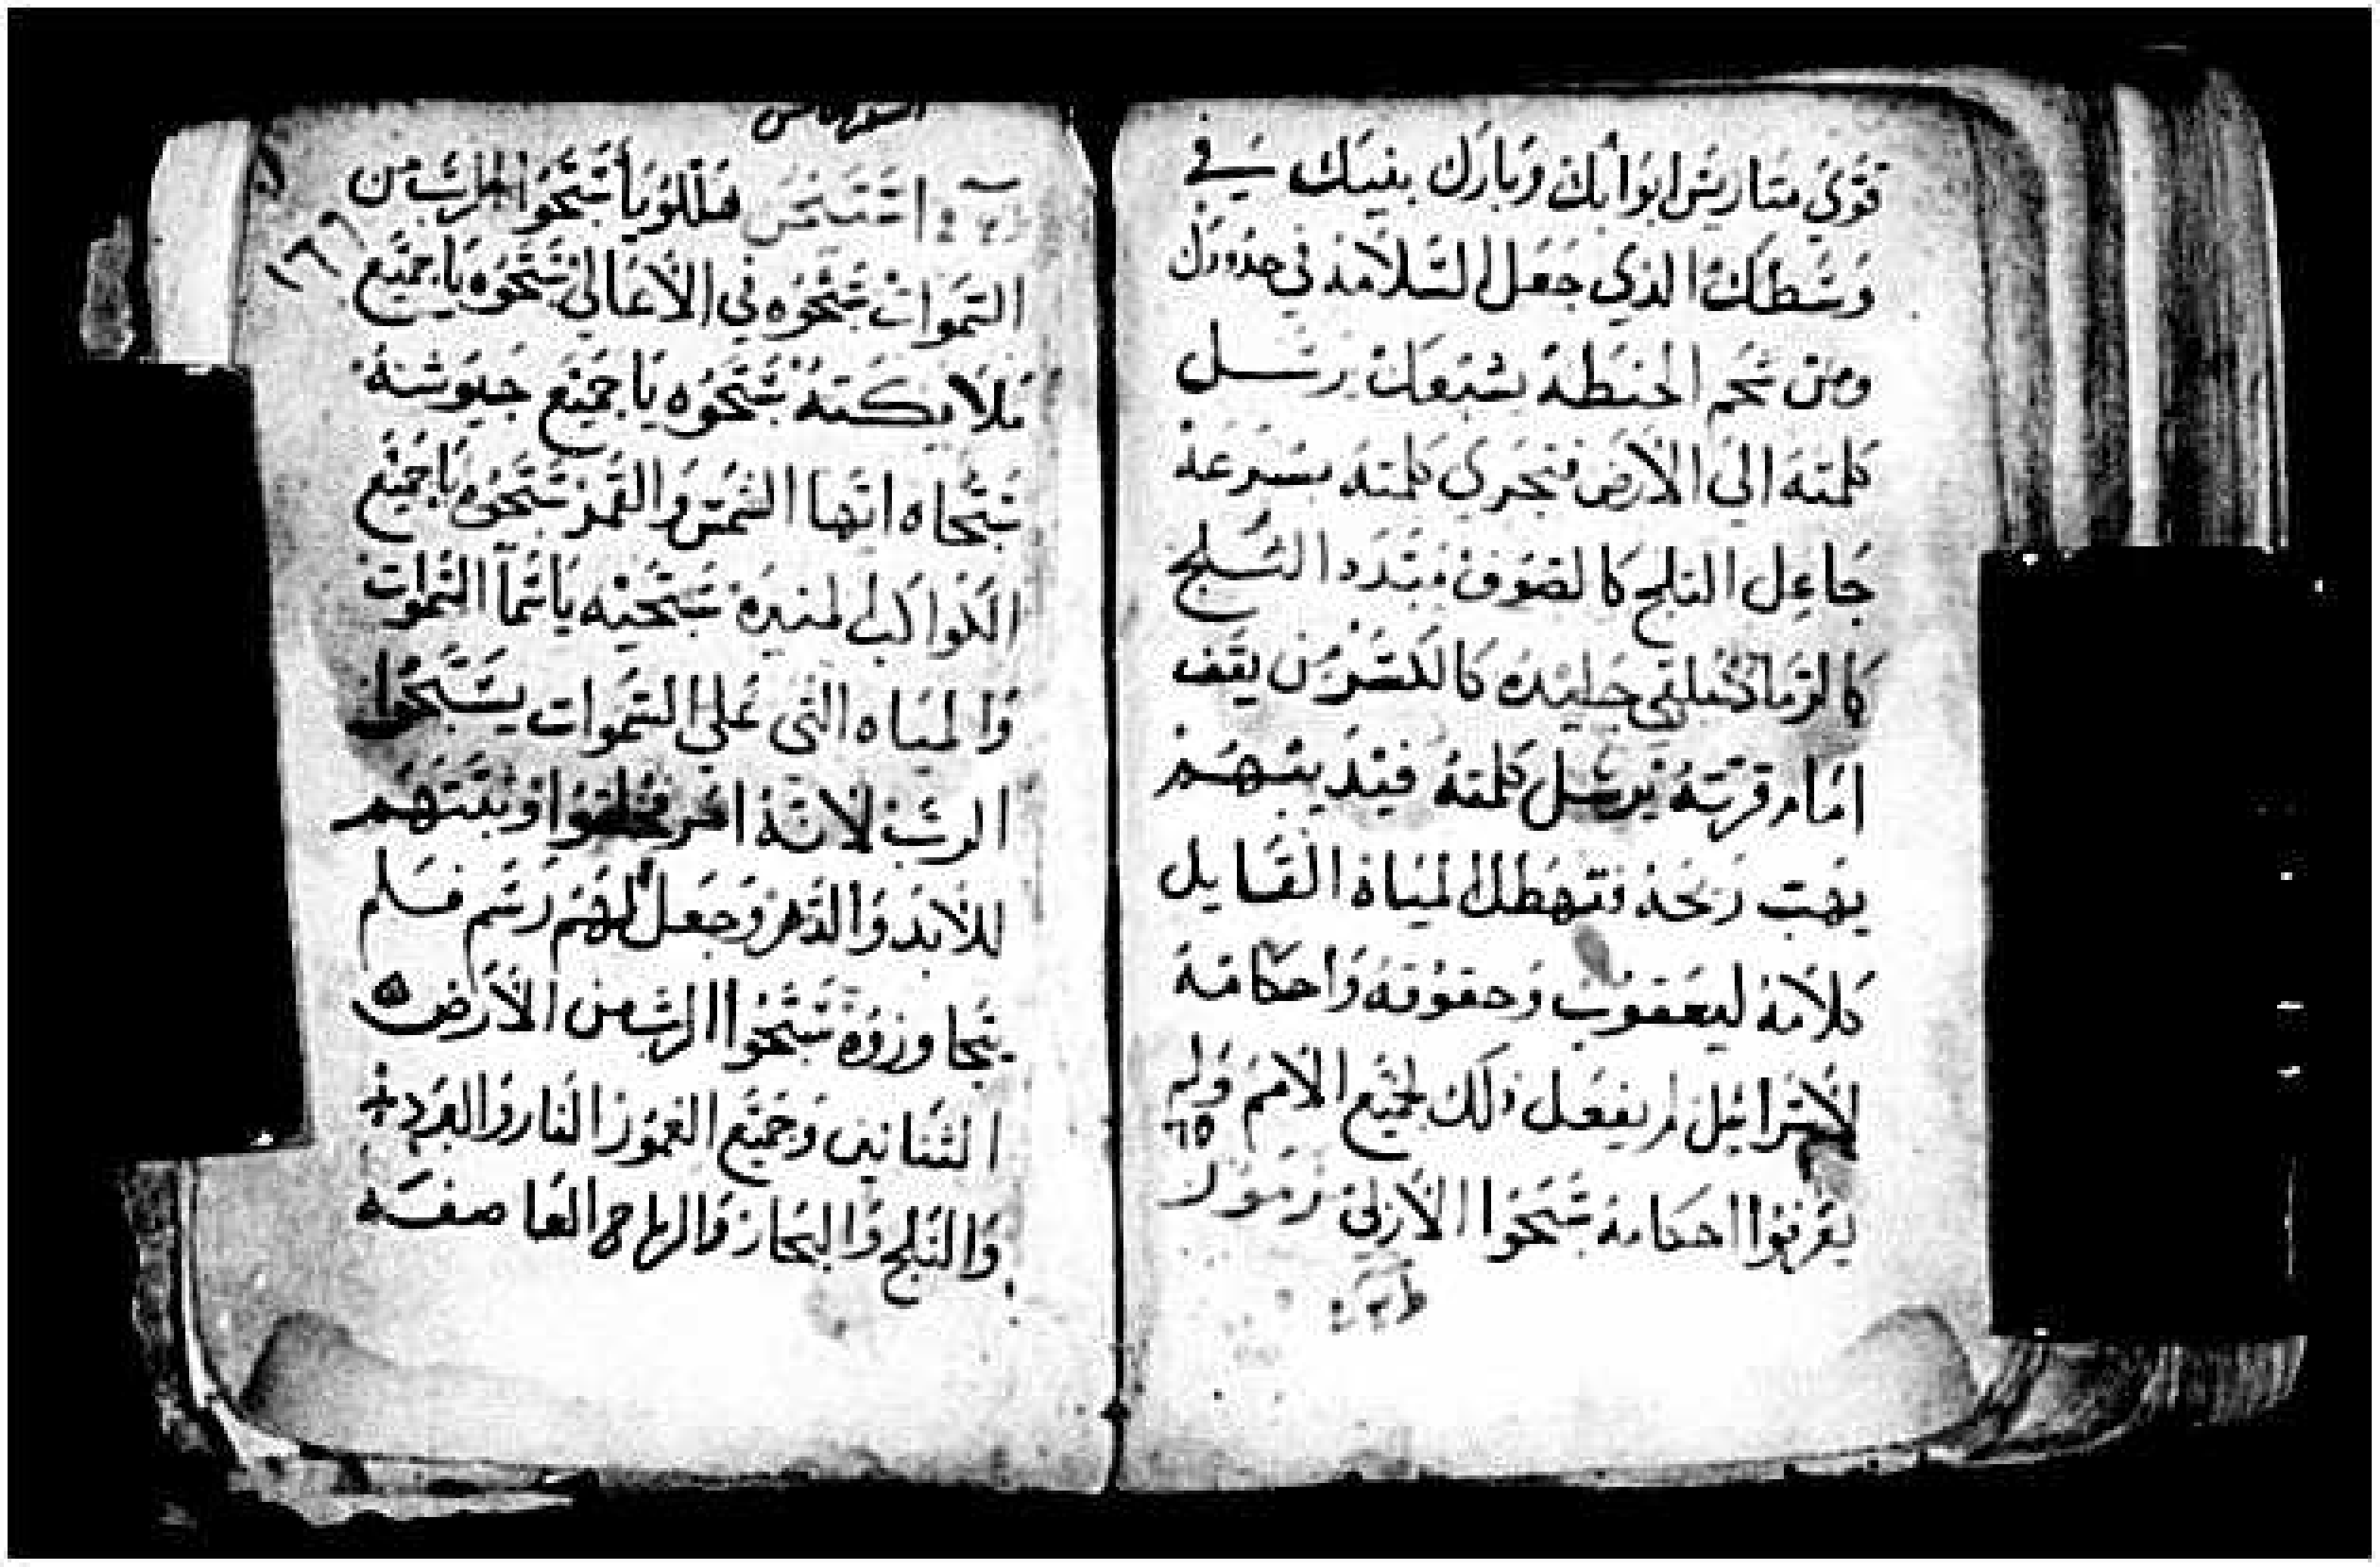 قوّي متاريس ابوابك وبارك بنيك في
وسطك الذي جعل السلامة في حدودك
ومن شحم الحنطة يشبعك يرسل
كلمته الي الارض فتجري كلمته بسرعة
جاعل الثلج كالصوف مبدد الثلج
كالرماد يلقي جليده كالكسر من يقف
امام قربته يرسل كلمته فيذيبهم
يهب ريحه فتهطل المياة القايل
كلامه ليعقوب وحقوقه واحكامه
لاسرائيل لم يفعل ذلك لجميع الامم ولم
يعرفوا احكامه سبحوا الازلي زمور
هللويا سبحوا الرب من
السموات سبحوه في الاعالي سبحوه يا جميع
ملايكته سبحوه يا جميع جيوشه
سبحاه ايها الشمس والقمر سبحوه يا جميع
الكواكب المنيرة سبحيه يا سمآ السموات
والمياه التي علي السموات يسبحوا
الرب لانه امر فخلقوا وثبتهم
للابد والدهر وجعل لهم رسم فلم
يتجاوزوه سبحوا الرب من الارض
التنانين وجميع الغمور النار والبرد
والثلج والبخار والرياح العاصفه
١٦٦